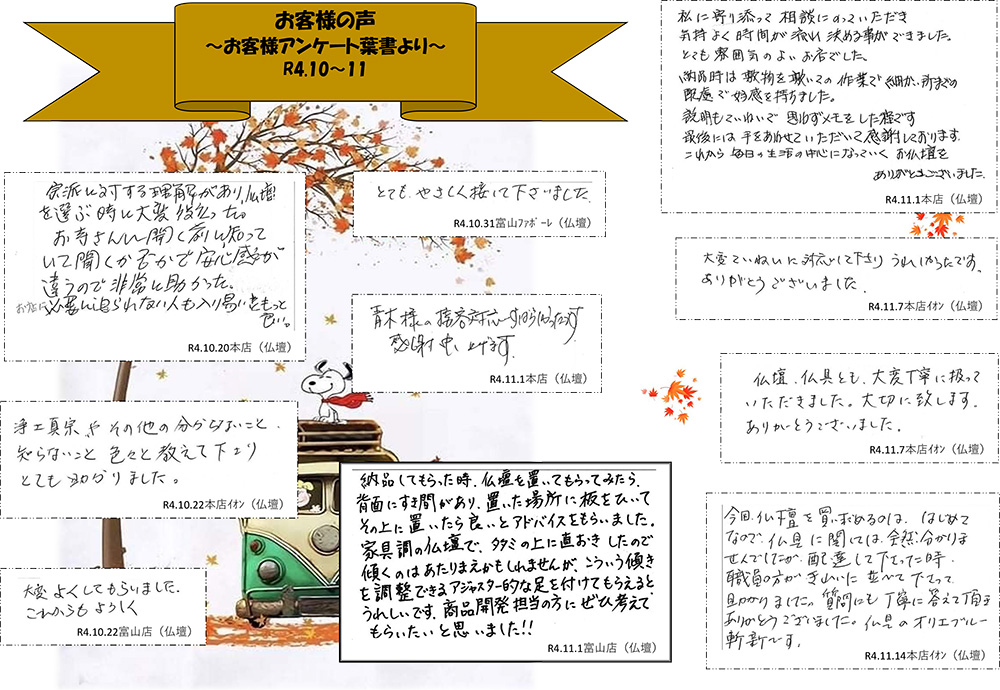 お客様の声
～お客様アンケート葉書より～
R4.10～11
私に寄り添って相談にのっていただき
気持よく時間が流れ決める事ができました。
とても雰囲気のよいお店でした。
納品時は敷物を敷いての作業で細か、所までの
配慮で好感を持ちました。
説明もていねいで思わずメモをした程です
最後には手をあわせていただいて感謝しております
これから毎日の生活の中心になっていくお仏壇を
ありがとうございました.
R4.11.1本店（仏壇）
宗派に対する理解があり、仏壇
を選ぶ時に大変役立った。
お寺さんに聞く前に知って
いて聞くか否かで安心感が
違うので非常に助かった。
お店に
必要に迫られない人も入り易いともっと
良い。
R4.10.20本店（仏壇）
とても、やさしく接いて下さいました
R4.10.31富山ﾌｧﾎﾞｰﾚ（仏壇）
大変ていねいに対応して下さり うれしかったです。
ありがとうございました
R4.11.7本店ｲｵﾝ（仏壇）
青木様の接客対応
感謝申し上げます
R4.11.1本店（仏壇）
仏壇、仏具とも、大変丁寧に扱って
いただきました。大切に致します。
ありがとうございました。
R4.11.7本店ｲｵﾝ（仏壇）
浄土真宗やその他の分からないこと、
知らないこと 色々と教えて下さり
とても助かりました。
R4.10.22本店ｲｵﾝ（仏壇）
納品してもらった時、仏壇を置いてもらってみたら、
背面にすき間があり、置いた場所に板をひいて
その上に置いたら良いとアドバイスをもらいました。
家具調の仏壇で、タタミの上に直おきしたので
傾くのはあたりまえかもしれませんが、こういう傾き
を調整できるアジャスター的な足を付けてもらえると
うれしいです。商品開発担当の方にぜひ考えて
もらいたいと思いました!!
R4.11.1富山店（仏壇）
今回、仏壇を買い求めるのは、はじめて
なので、仏具に関しては、全然分かりま
せんでしたが、配達して下さった時、
職員の方が きれいに並べて下さって
助かりました。質問にも丁寧に答えて頂き
ありがとうございました。仏具のオリエブルー
斬新です。
R4.11.14本店ｲｵﾝ（仏壇）
大変よくしてもらいました.
これからもよろしく
R4.10.22富山店（仏壇）